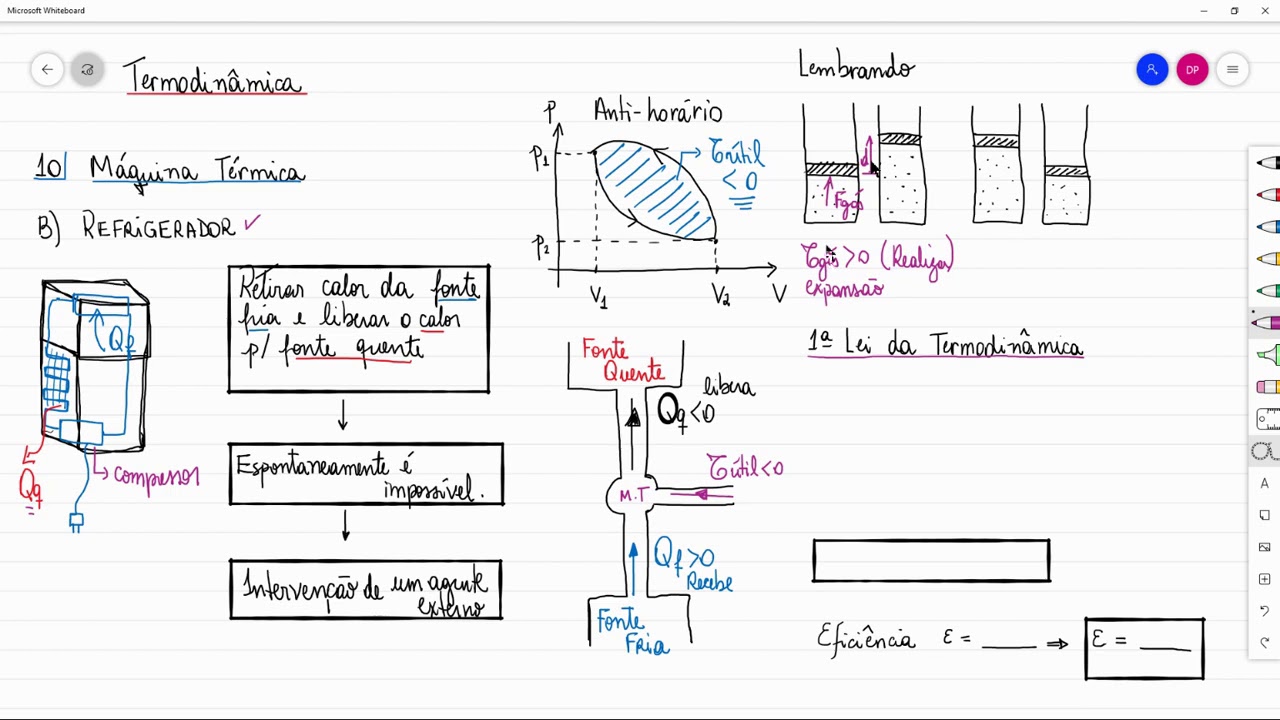 Microsoft Whiteboard
Termodinâmica
10 Máquina Térmica
B) REFRIGERADOR ✓
Qf
Qq
compressor
Retirar calor da fonte
fria e liberar o calor
p/ fonte quente
Espontaneamente é
impossível.
Intervenção de um agente
externo
Anti-horário
P
P1
P2
V1
V2
V
τútil
< 0
Fonte
Quente
libera
Qq < 0
τútil < 0
M.T
Qf > 0
Recebe
Fonte
FRIA
Lembrando
DP
d
Fgás
τgás > 0 (Realizar)
expansão
1ª Lei da Termodinâmica
Eficiência ε = ____ ⇒ ε = ____
A